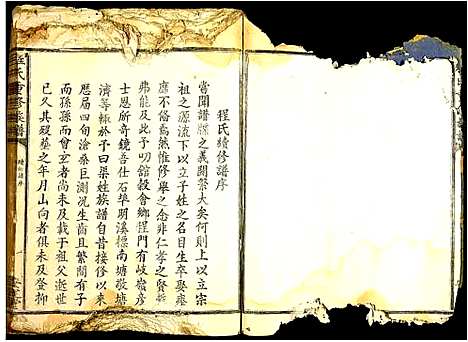 程氏續修譜序
嘗聞譜牒之義關祭大矣何則上以立宗
祖之源流下以立子姓之名目生卒娶
應不昏然無惟修舉之念非仁孝之賢
弗能及此予叨舘穀會鄉程門有岐嶺彥
士恩所奇鏡善仕石埠羽溪檑南塘敬塘
濟等紙於予曰渠姓族譜自昔接修以來
歷屆四旬滄桑巨測況生齒且繁間有子
而孫孫而曾玄者尚未及於祖父逝世
已久其硯墓之年月山向者俱未及登柳
程氏重修族譜
續修譜序
一